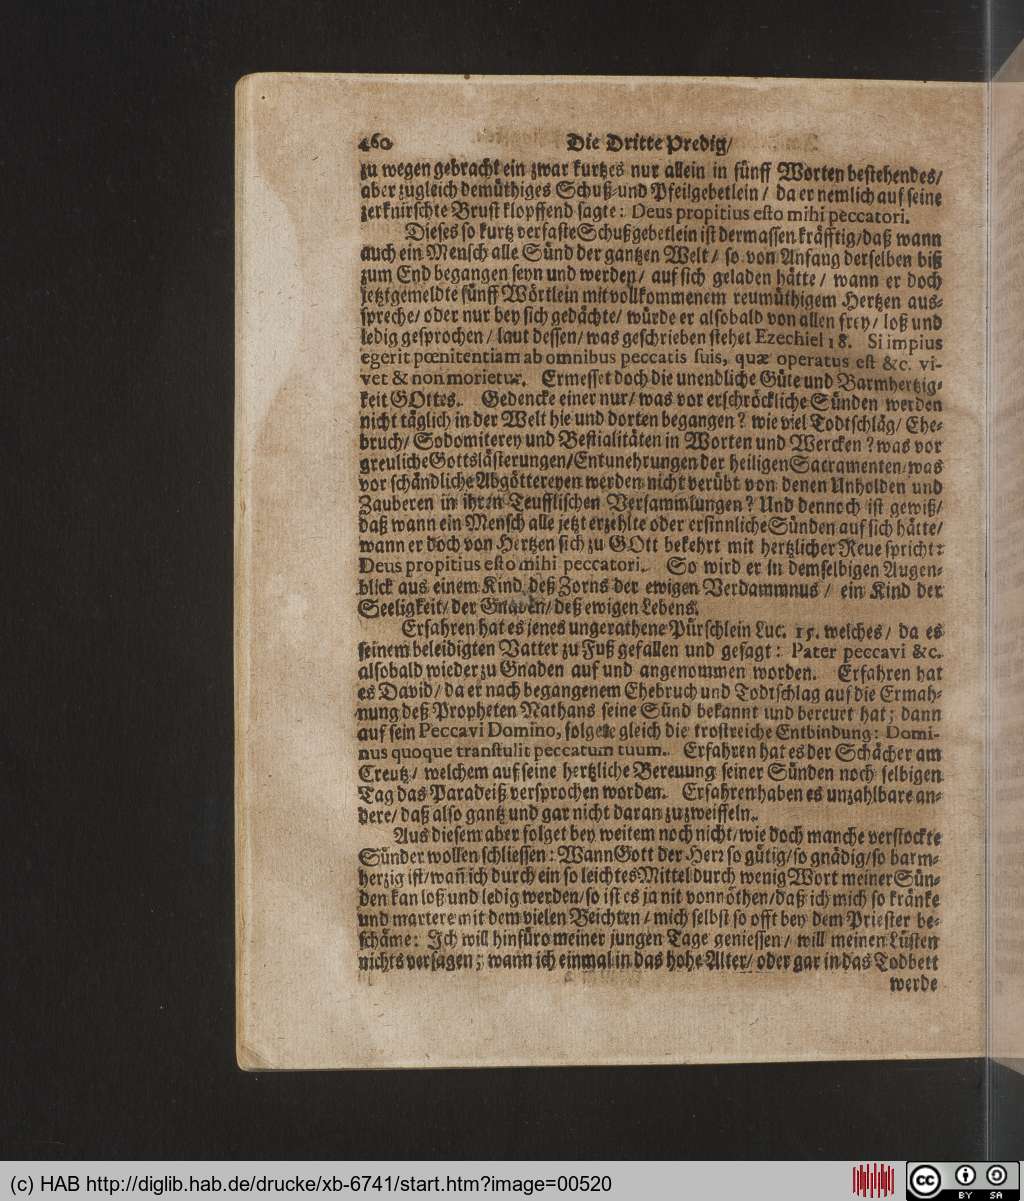 460 Die Dritte Predig/
zu wegen gebracht ein zwar kurtzes nur allein in fünff Worten bestehendes/
aber zugleich demüthiges Schuß- und Pfeilgebetlein / da er nemlich auf seine
zerknirschte Brust klopffend sagte: Deus propitius esto mihi peccatori.
Dieses so kurtz verfaste Schußgebetlein ist dermassen kräfftig/ daß wann
auch ein Mensch alle Sünd der gantzen Welt / so von Anfang derselben biß
zum End begangen seyn und werden / auf sich geladen hätte / wann er doch
jetztgemeldte fünff Wörtlein mit vollkommenem reumüthigem Hertzen aus-
spreche / oder nur bey sich gedächte / würde er alsobald von allen frey / loß und
ledig gesprochen / laut dessen / was geschrieben stehet Ezechiel 18. Si impius
egerit pœnitentiam ab omnibus peccatis suis, quæ operatus est &c. vi-
vet & non morietur. Ermesset doch die unendliche Güte und Barmhertzig-
keit GOttes. Gedencke einer nur / was vor erschröckliche Sünden werden
nicht täglich in der Welt hie und dorten begangen? wie viel Todtschläg / Ehe-
bruch / Sodomiterey und Bestialitäten in Worten und Wercken? was vor
greuliche Gottslästerungen / Entunehrungen der heiligen Sacramenten / was
vor schändliche Abgöttereyen werden nicht verübt von denen Unholden und
Zauberen in ihren Teufflischen Versammlungen? Und dennoch ist gewiß/
daß wann ein Mensch alle jetzt erzehlte oder ersinnliche Sünden auf sich hätte/
wann er doch von Hertzen sich zu GOtt bekehrt mit hertzlicher Reue spricht:
Deus propitius esto mihi peccatori. So wird er in demselbigen Augen-
blick aus einem Kind deß Zorns der ewigen Verdammnus / ein Kind der
Seeligkeit / der Gnaden / deß ewigen Lebens.
Erfahren hat es jenes ungerathene Pürschlein Luc. 15. welches / da es
seinem beleidigten Vatter zu Fuß gefallen und gesagt: Pater peccavi &c.
alsobald wieder zu Gnaden auf und angenommen worden. Erfahren hat
es David / da er nach begangenem Ehebruch und Todtschlag auf die Ermah-
nung deß Propheten Nathans seine Sünd bekannt und bereuet hat; dann
auf sein Peccavi Domino, folgete gleich die trostreiche Entbindung: Domi-
nus quoque transtulit peccatum tuum. Erfahren hat es der Schächer am
Creutz / welchem auf seine hertzliche Bereuung seiner Sünden noch selbigen
Tag das Paradeiß versprochen worden. Erfahren haben es unzahlbare an-
dere / daß also gantz und gar nicht daran zu zweiffeln.
Aus diesem aber folget bey weitem noch nicht / wie doch manche verstockte
Sünder wollen schliessen: Wann Gott der Herr so gütig / so gnädig / so barm-
herzig ist / wañ ich durch ein so leichtes Mittel durch wenig Wort meiner Sün-
den kan loß und ledig werden / so ist es ja nit vonnöthen / daß ich mich so kränke
und martere mit dem vielen Beichten / mich selbst so offt bey dem Priester be-
schäme: Ich will hinfüro meiner jungen Tage geniessen / will meinen Lüsten
nichts versagen; wann ich einmal in das hohe Alter / oder gar in das Todbett
werde
(c) HAB http://diglib.hab.de/drucke/xb-6741/start.htm?image=00520
cc BY SA